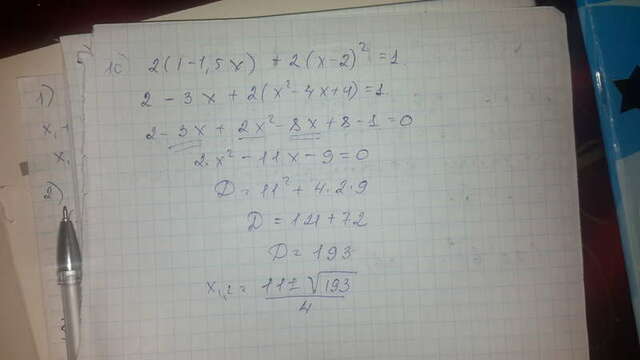 1c) 2(1-1,5x) + 2(x-2)² = 1.
2 - 3x + 2(x²-4x+4) = 1.
2 - 3x + 2x² - 8x + 8 - 1 = 0
2x² - 11x - 9 = 0
D = 11² + 4.2.9
D = 121 + 72
D = 193
x₁,₂ = (11 ± √193) / 4
1)
x₁
x₁
2)